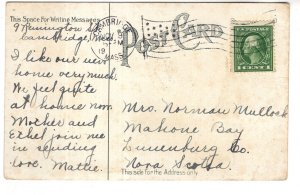 This Space For Writing Messages
POST CARD
9 Kennington
Cambridge,
I like our new
home very much.
We feel quite
at home now.
Mother and
Ethel join me
in sending
love. Mattie.
CAMBRIDGE
MASS.
Mrs. Norman Mullock
Mahone Bay
Lunenburg Co.
Nova Scotia.
This side for the Address only